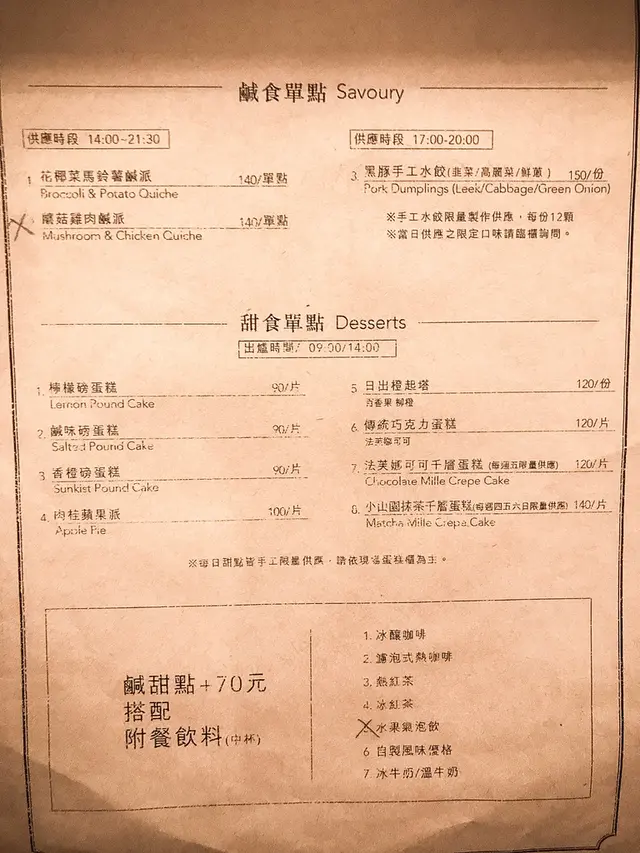 鹹食單點 Savoury
供應時段 14:00~21:30
1. 花椰菜馬鈴薯鹹派 140/單點
Broccoli & Potato Quiche
蘑菇雞肉鹹派 140/單點
Mushroom & Chicken Quiche
供應時段 17:00-20:00
3. 黑豚手工水餃(韭菜/高麗菜/鮮蔥) 150/份
Pork Dumplings (Leek/Cabbage/Green Onion)
※手工水餃限量製作供應，每份12顆
※當日供應之限定口味請臨櫃詢問。
甜食單點 Desserts
出爐時間/ 09:00/14:00
1. 檸檬磅蛋糕 90/片
Lemon Pound Cake
2. 鹹味磅蛋糕 90/片
Salted Pound Cake
3. 香橙磅蛋糕 90/片
Sunkist Pound Cake
4. 肉桂蘋果派 100/片
Apple Pie
5. 日出橙起塔 120/份
百香果 柳橙
6. 傳統巧克力蛋糕 120/片
法芙娜可可
7. 法芙娜可可千層蛋糕 (每週五限量供應) 120/片
Chocolate Mille Crepe Cake
8. 小山園抹茶千層蛋糕(每週四五六日限量供應) 140/片
Matcha Mille Crepe Cake
※每日甜點皆手工限量供應，請依現場蛋糕櫃為主。
鹹甜點+70元
搭配
附餐飲料(中杯)
1. 冰釀咖啡
2. 濾泡式熱咖啡
3. 熱紅茶
4. 冰紅茶
水果氣泡飲
6 自製風味優格
7. 冰牛奶/溫牛奶